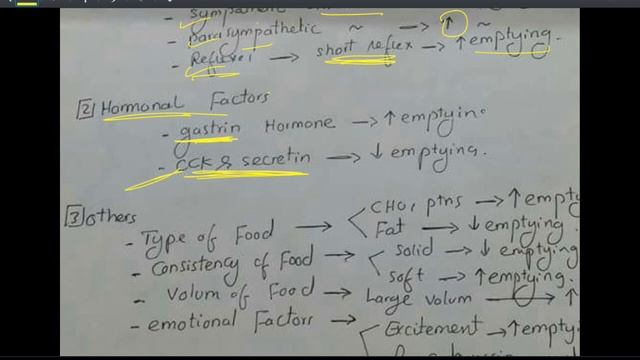 - sympathetic
- parasympathetic ~ → ↑ ~
- Reflexes → short reflex → ↑ emptying.
[2] Hormonal Factors
- gastrin Hormone → ↑ emptyin
- CCK & secretin → ↓ emptying.
[3] others
- Type of Food → CHO, ptns → ↑ empty
Fat → ↓ emptying.
- Consistency of Food → solid → ↓ emptying
soft → ↑ emptying.
- Volum of Food → Large volum → ↑
- emotional Factors → Excitement → ↑ emptyin